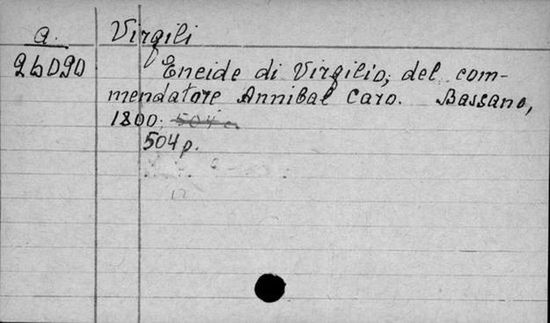 a. Virgili
26020 Eneide di Virgilio, del com-
mendatore Annibal Caro. Bassano,
1800;
504 p.